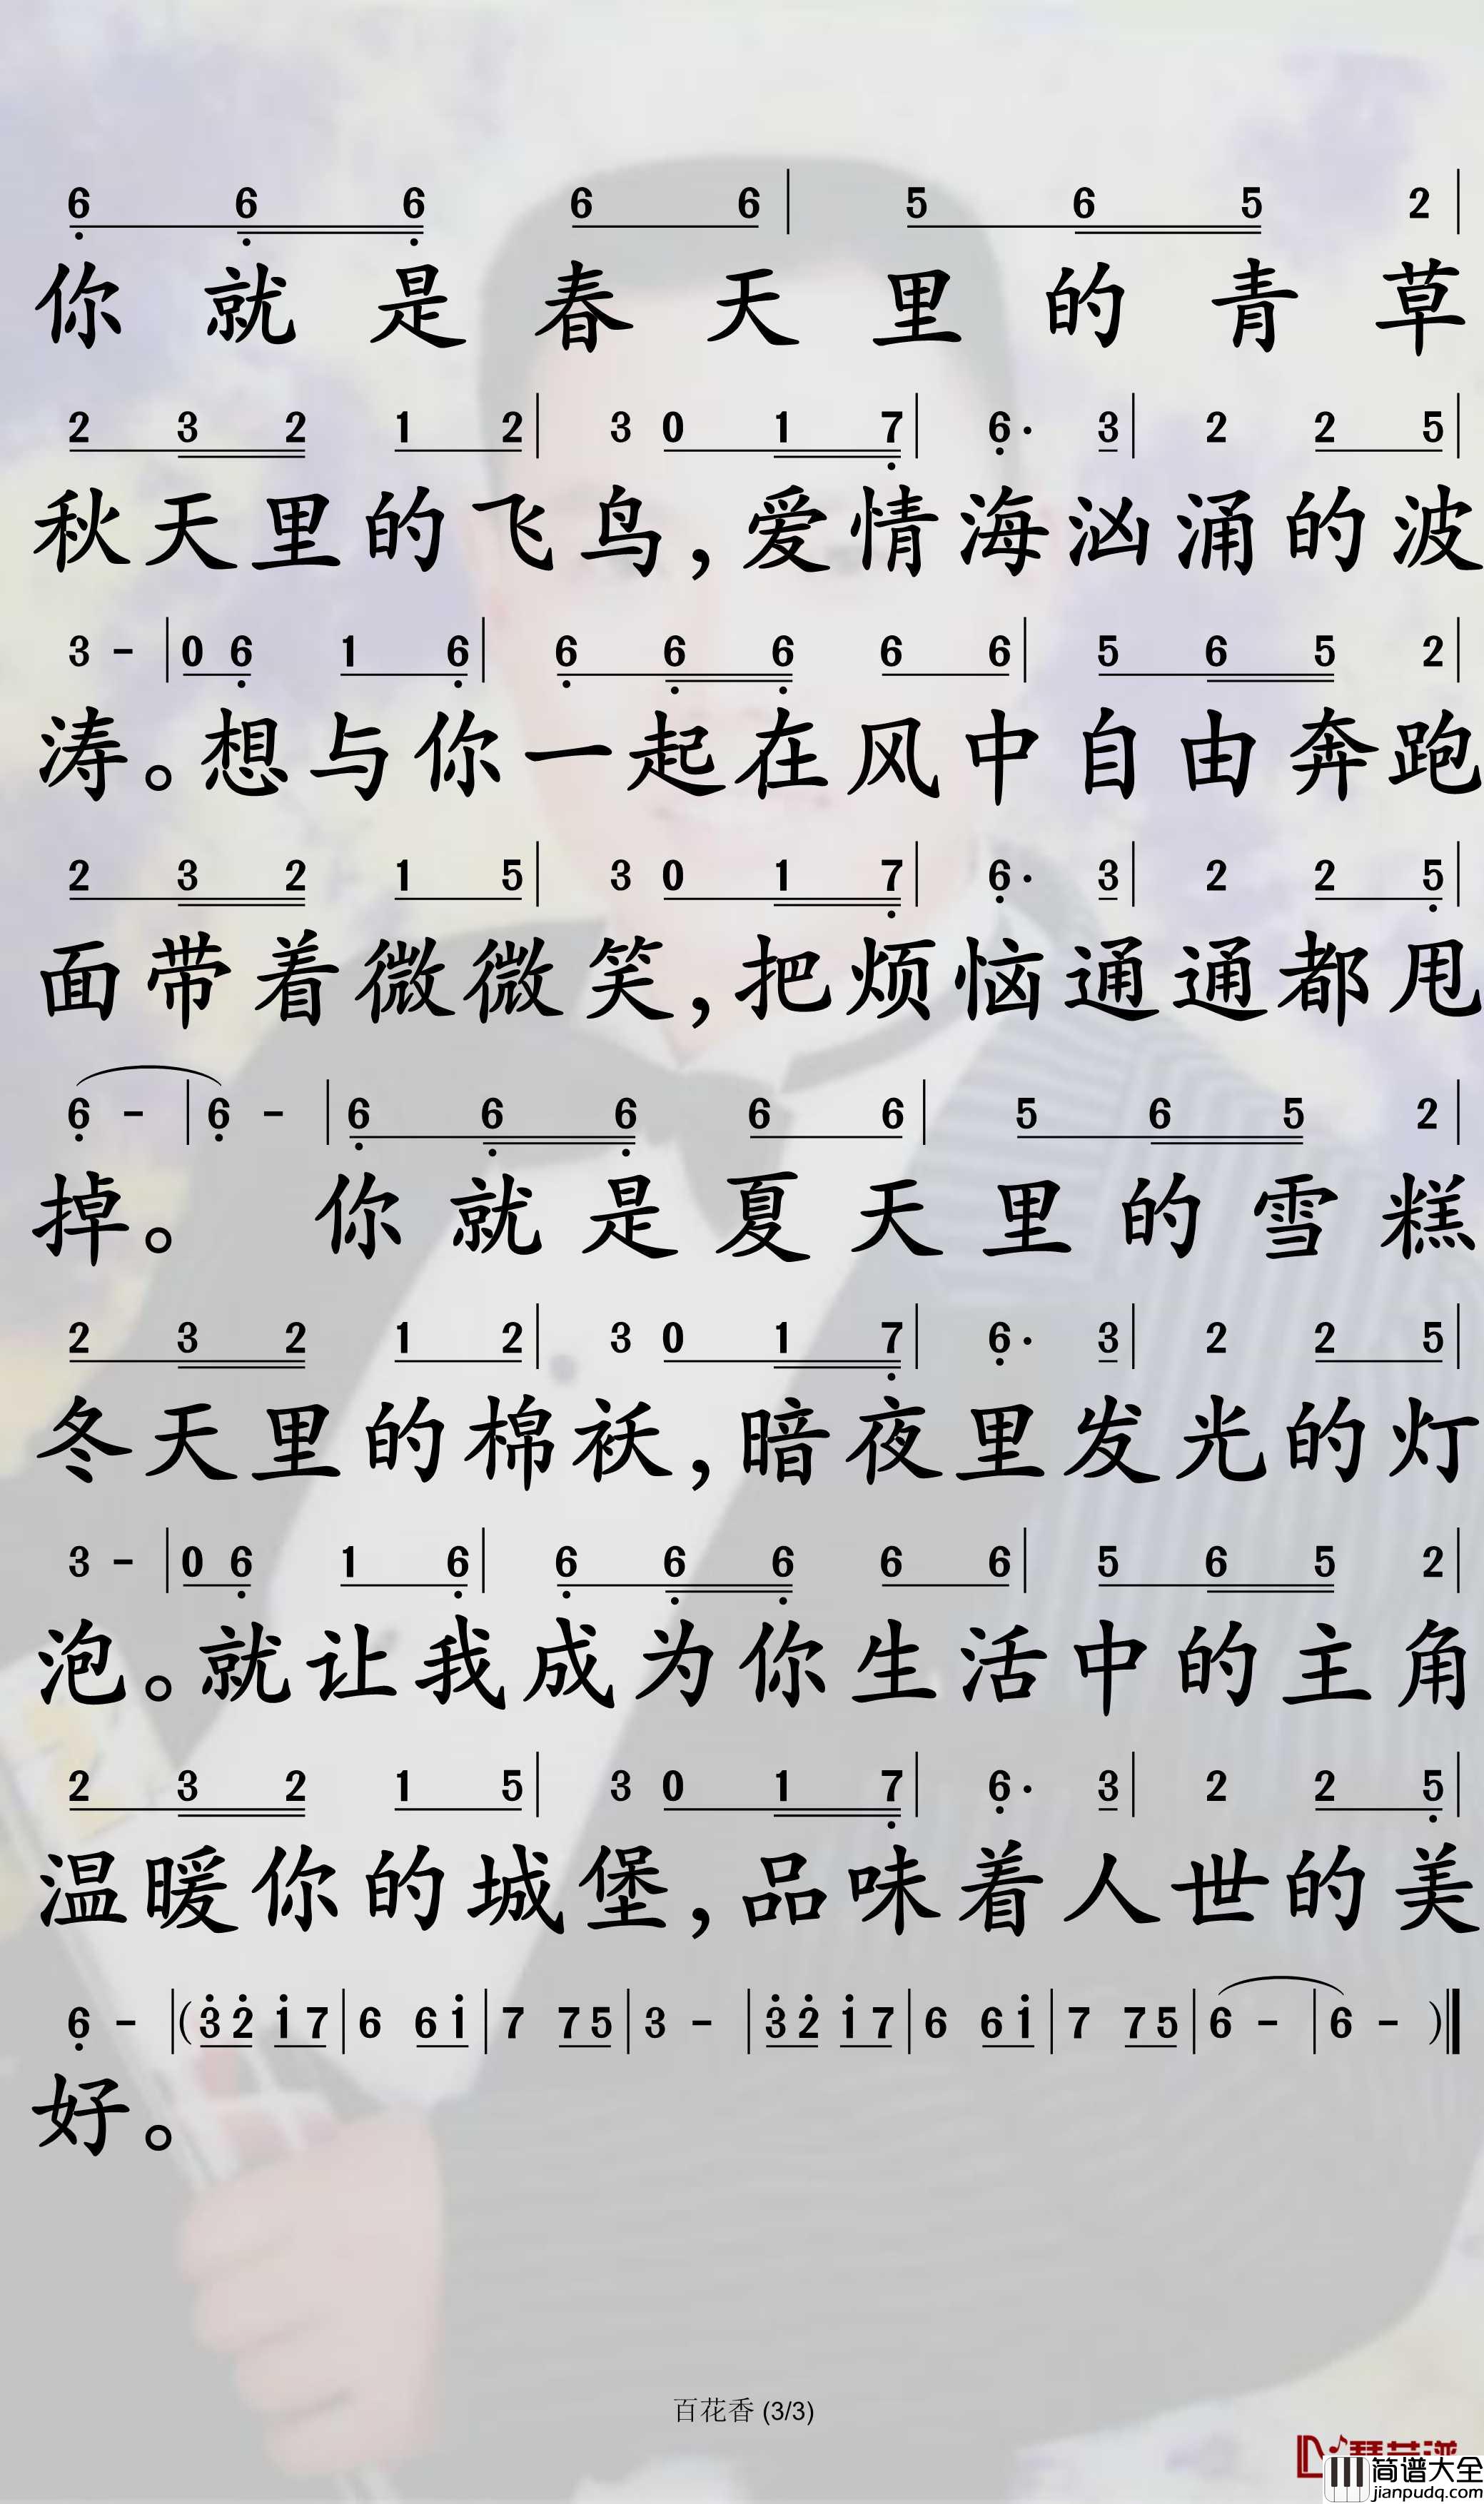 6 6 6 6 6 | 5 6 5 2 |
你就是春天里的青草
2 3 2 1 2 | 3 0 1 7 | 6· 3 | 2 2 5 |
秋天里的飞鸟,爱情海汹涌的波
3 - | 0 6 1 6 | 6 6 6 6 6 | 5 6 5 2 |
涛。想与你一起在风中自由奔跑
2 3 2 1 5 | 3 0 1 7 | 6· 3 | 2 2 5 |
面带着微微笑,把烦恼通通都甩
6 - | 6 - | 6 6 6 6 6 | 5 6 5 2 |
掉。你就是夏天里的雪糕
2 3 2 1 2 | 3 0 1 7 | 6· 3 | 2 2 5 |
冬天里的棉袄,暗夜里发光的灯
3 - | 0 6 1 6 | 6 6 6 6 6 | 5 6 5 2 |
泡。就让我成为你生活中的主角
2 3 2 1 5 | 3 0 1 7 | 6· 3 | 2 2 5 |
温暖你的城堡,品味着人世的美
6 - | (3 2 1 7 | 6 6 1 | 7 7 5 | 3 - | 3 2 1 7 | 6 6 1 | 7 7 5 | 6 - | 6 - )‖
好。
百花香 (3/3)
简谱大全
jianpudq.com